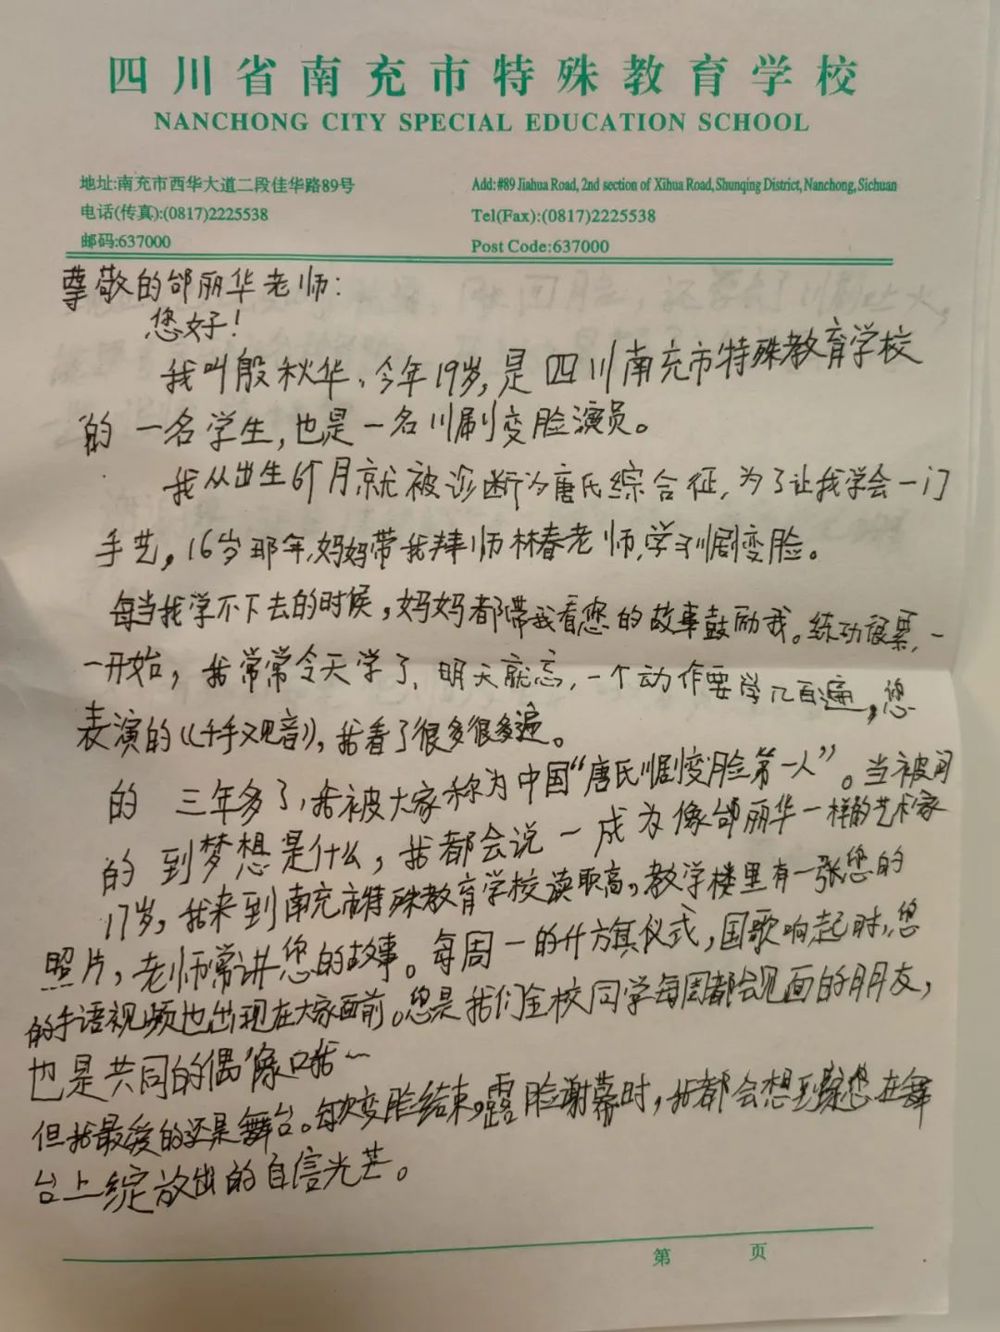 四川省南充市特殊教育学校
NANCHONG CITY SPECIAL EDUCATION SCHOOL
地址:南充市西华大道二段佳华路89号
电话(传真):(0817)2225538
邮码:637000
Add: #89 Jiahua Road, 2nd section of Xihua Road, Shunqing District, Nanchong, Sichuan
Tel(Fax):(0817)2225538
Post Code:637000
尊敬的邰丽华老师:
您好!
我叫殷秋华、今年19岁,是四川南充市特殊教育学校
的一名学生,也是一名川剧变脸演员。
我从出生6个月就被诊断为唐氏综合征,为了让我学会一门
手艺,16岁那年,妈妈带我拜师林春老师,学习川剧变脸。
每当我学不下去的时候,妈妈都带我看您的故事鼓励我。练功很累,一
一开始,我常常今天学了、明天就忘,一个动作要学几百遍,您
表演的《千手观音》,我看了很多很多遍。
的 三年多了,我被大家称为中国“唐氏川剧变脸第一人”。当被问
的 到梦想是什么,我都会说一成为像邰丽华一样的艺术家
17岁,我来到南充市特殊教育学校读职高,教学楼里有一张您的
照片,老师常讲您的故事。每周一的升方旗仪式,国歌响起时,您
的手语视频也出现在大家面前。您是我们全校同学每周都会见面的朋友,
也是共同的偶像哦~
但我最爱的还是舞台。每次变脸结束,露脸谢幕时,我都会想到您在舞
台上绽放出的自信光芒。
第 页